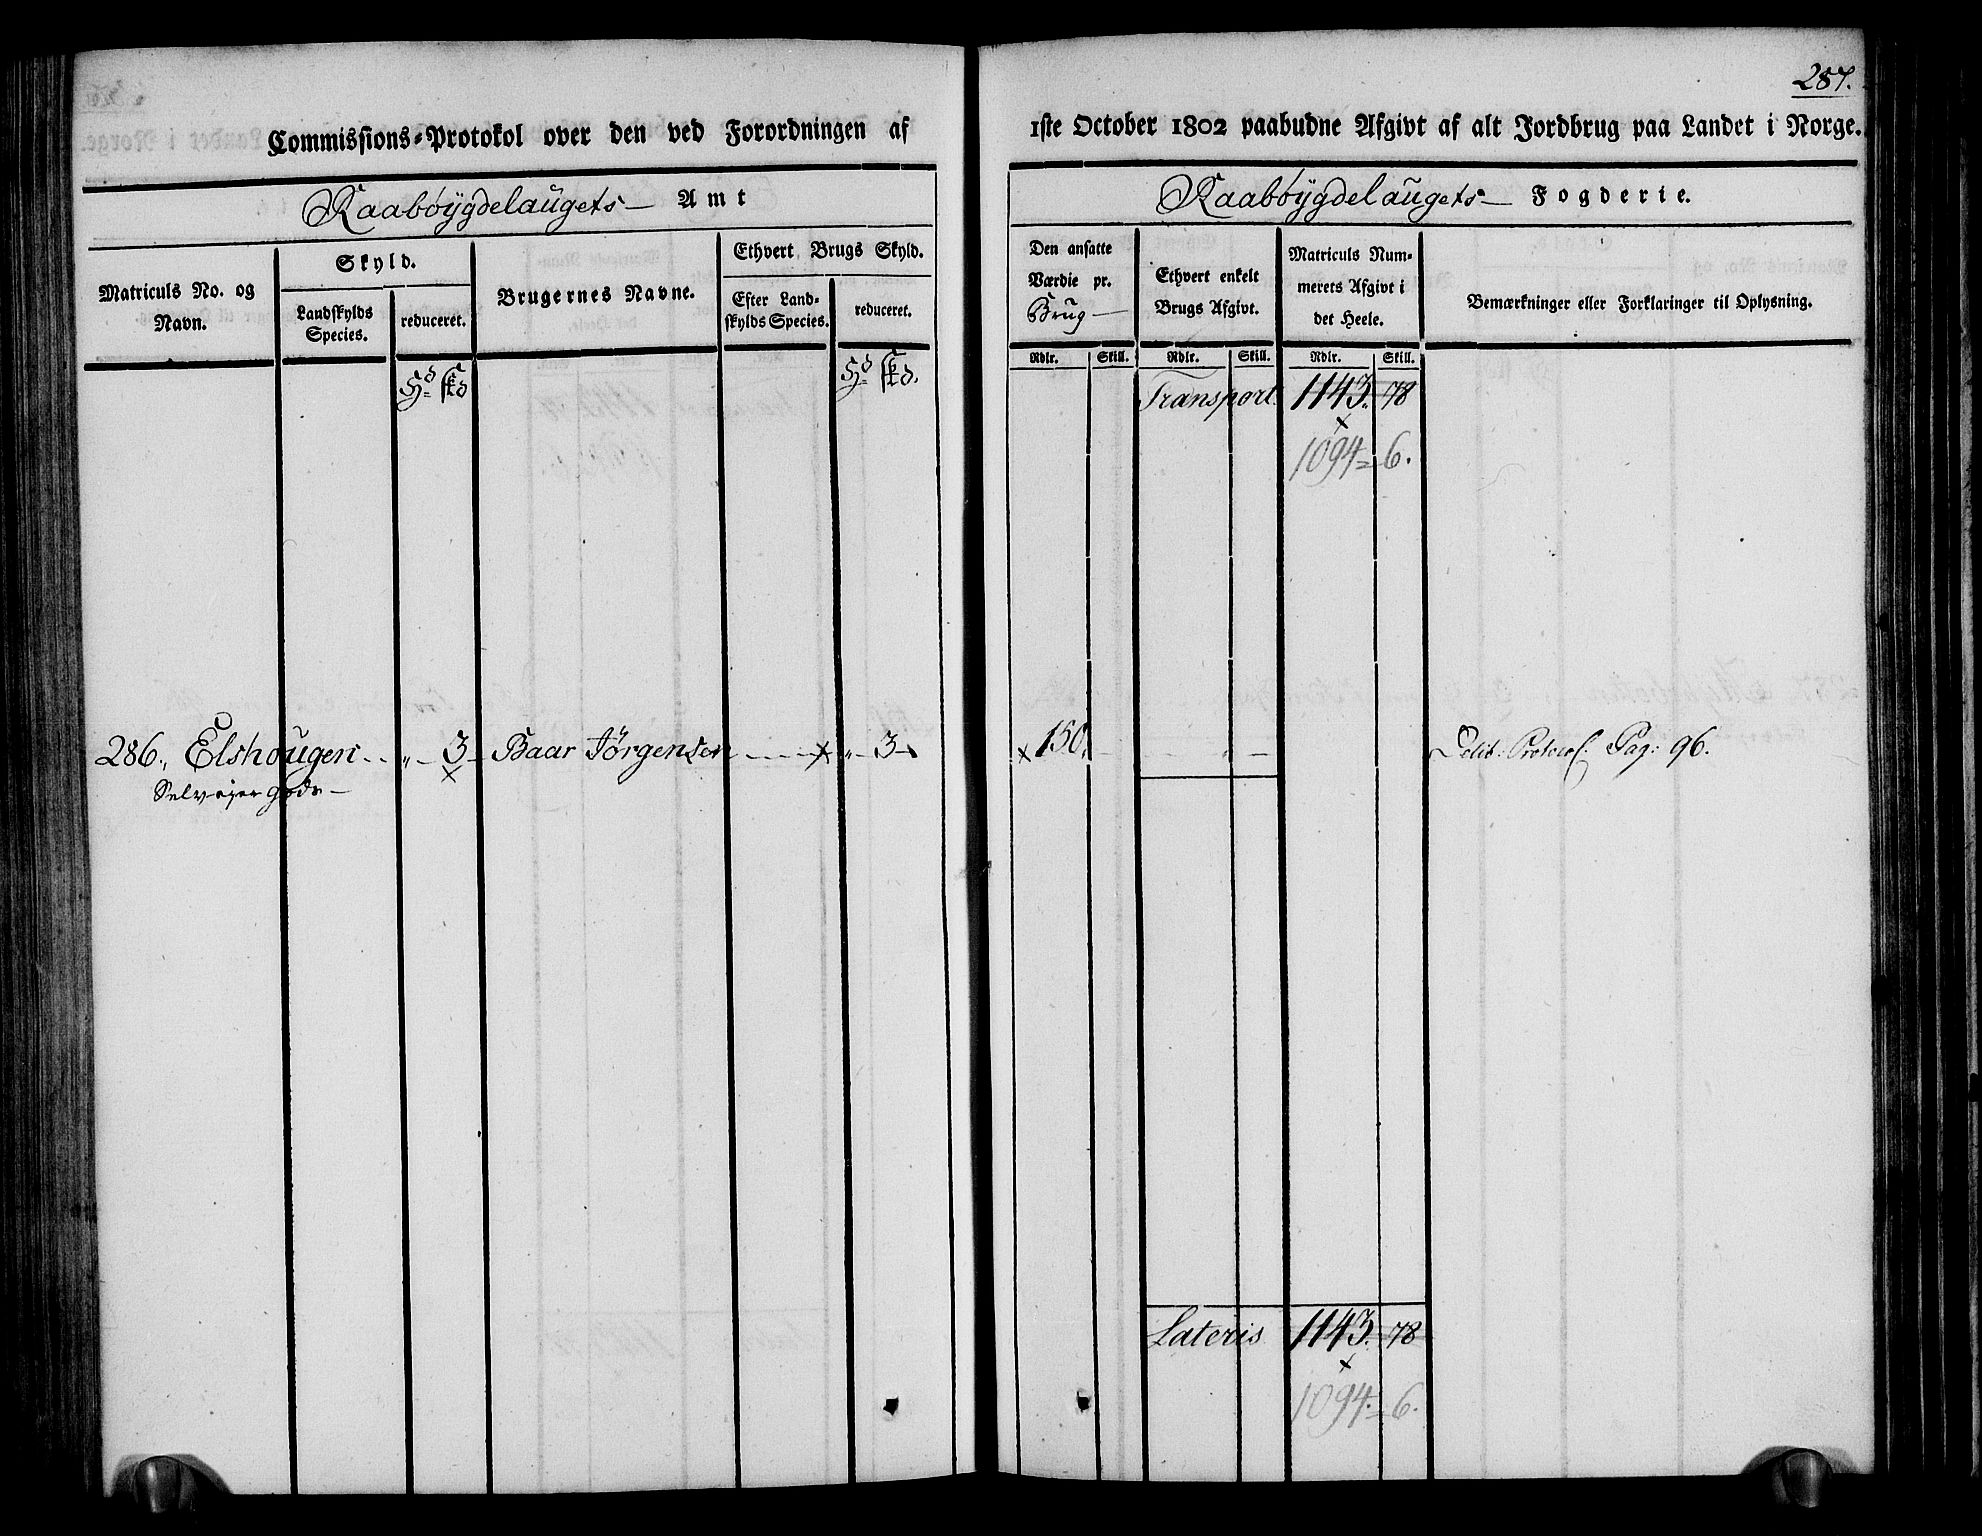 287.
Commissions-Protokol over den ved Forordningen af 1ste October 1802 paabudne Afgivt af alt Jordbrug paa Landet i Norge.
Raabøygdelaugets Amt
Raabøygdelaugets Fogderie.
Matriculs No. og Navn.
Skyld.
Landskylds Species.
reduceret.
Brugernes Navne.
Ethvert Brugs Skyld.
Efter Landskylds Species.
reduceret.
Den ansatte Værdie pr. Brug
Ethvert enkelt Brugs Afgivt.
Matriculs Nummerets Afgivt i det Heele.
Bemærkninger eller Forklaringer til Oplysning.
Rdlr. Skill. Rdlr. Skill. Rdlr. Skill.
Hd skd Hd skd.
Transport. 1143. 78
x
1094 = 6.
286., Elshougen - - „ - 3 - Baar Jörgensen - - - x „ - 3 - x 150. - - „ - Delib: Protocol Pag: 96.
x
Selvejer Gods -
Lateris 1143. 78
x
1094. = 6.